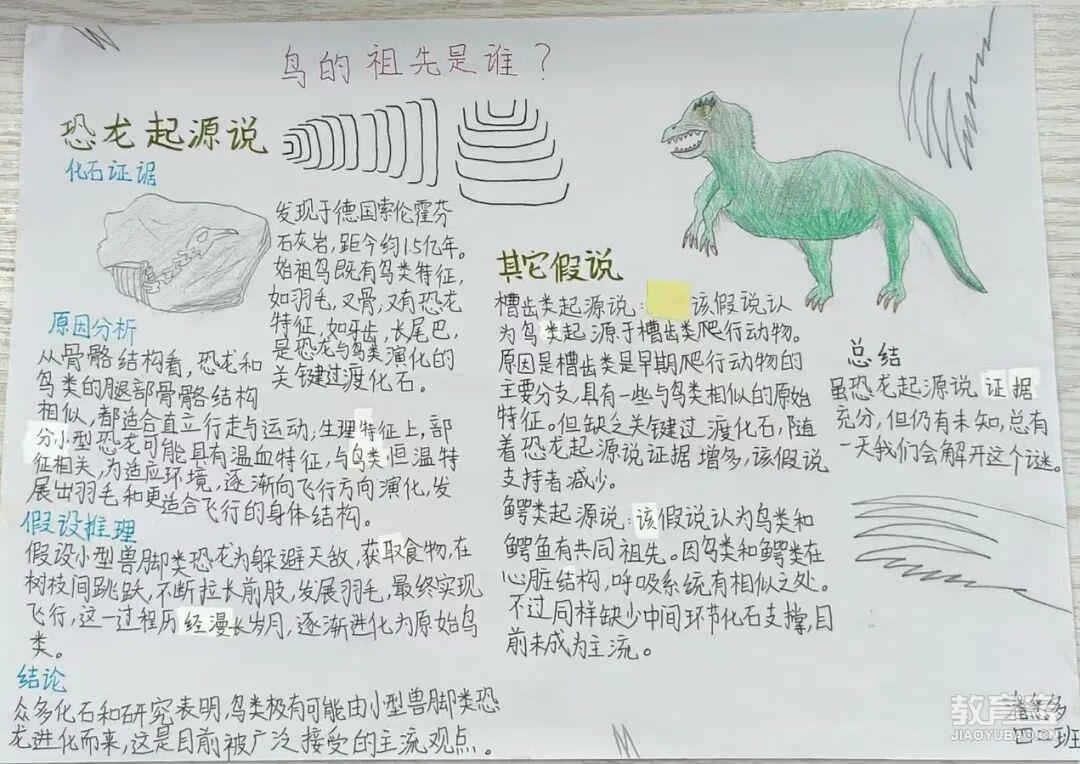 鸟的祖先是谁？
恐龙起源说
化石证据
发现于德国索伦霍芬
石灰岩，距今约1.5亿年。
始祖鸟既有鸟类特征，
如羽毛，叉骨，又有恐龙
特征，如牙齿，长尾巴，
是恐龙与鸟类演化的
关键过渡化石。
原因分析
从骨骼结构看，恐龙和
鸟类的腿部骨骼结构
相似，都适合直立行走与运动；生理特征上，部
分小型恐龙可能具有温血特征，与鸟类恒温特
征相关，为适应环境，逐渐向飞行方向演化，发
展出羽毛和更适合飞行的身体结构。
假设推理
假设小型兽脚类恐龙为躲避天敌，获取食物，在
树枝间跳跃，不断拉长前肢，发展羽毛，最终实现
飞行，这一过程历经漫长岁月，逐渐进化为原始鸟
类。
结论
众多化石和研究表明，鸟类极有可能由小型兽脚类恐
龙进化而来，这是目前被广泛接受的主流观点。
其它假说
槽齿类起源说：该假说认
为鸟类起源于槽齿类爬行动物。
原因是槽齿类是早期爬行动物的
主要分支，具有一些与鸟类相似的原始
特征。但缺乏关键过渡化石，随
着恐龙起源说证据增多，该假说
支持者减少。
鳄类起源说：该假说认为鸟类和
鳄鱼有共同祖先。因鸟类和鳄类在
心脏结构，呼吸系统有相似之处。
不过同样缺少中间环节化石支撑，目
前未成为主流。
总结
虽恐龙起源说证据
充分，但仍有未知，总有
一天我们会解开这个谜。
教育宝
JIAOYUBAO.CN
四二班